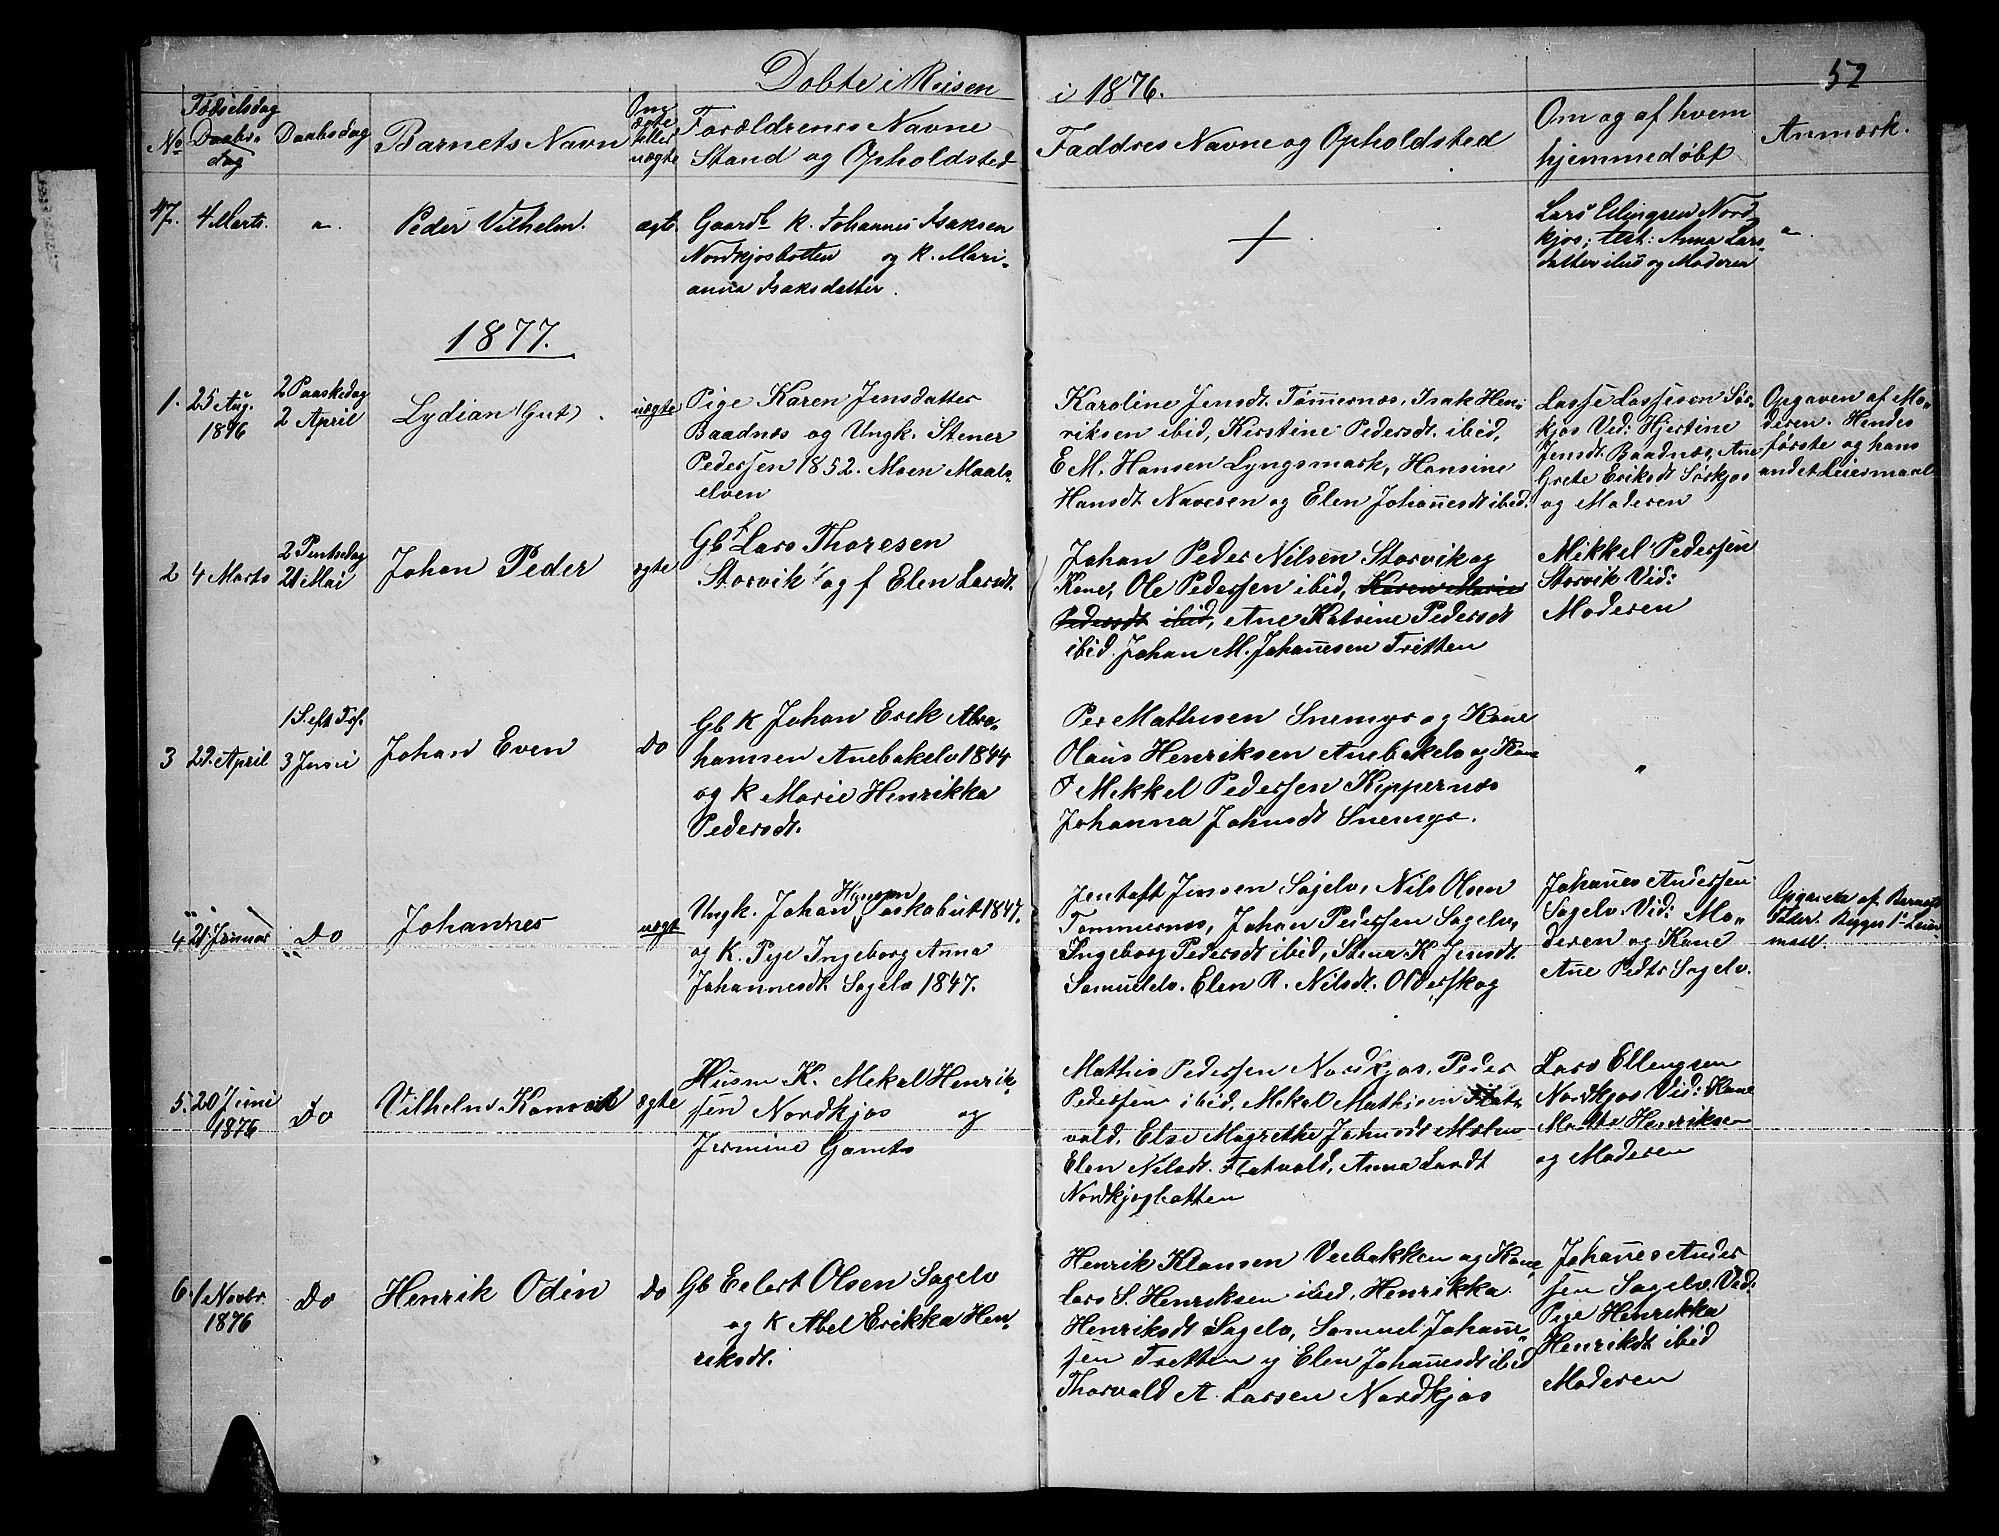 Døbte i Reisen
i 1876.
52
No
Fødselsdag
Daabs-
dag
Daabsdag
Barnets Navn
Om
ægte
eller
uægte
Forældrenes Navne
Stand og Opholdsted
Faddres Navne og Opholdsted
Om og af hvem
hjemmedøbt
Anmærk.
47.
4 Marts.
"
Peder Vilhelm.
ægte.
Gaardb k. Johannes Isaksen
Nordkjosbotten og k. Mari-
anna Isaksdatter.
Lars Ellingsen Nord-
kjos; test: Anna Lars-
datter ibid og Moderen
"
1877.
1.
25 Aug.
1876
2 Paaskedag
2 April
Lydian (Gut)
uægte
Pige Karen Jensdatter
Baadnæs og Ungk. Stener
Pedersen 1852. Moen Maals-
elven
Karoline Jensdt. Tømmernæs, Isak Hen-
riksen ibid, Kirstine Pedersdt. ibid,
E M. Hansen Lyngsmark, Hansine
Hansdt Navesen og Elen Johannesdt ibid.
Lasse Lassesen Sør-
kjos Vid: Hjertine
Jensdt. Baadnæs, Ane
Grete Eriksdt Sørkjos
og Moderen
Opgaven af Mo-
deren. Hendes
første og hans
andet Leiermaal
2
4 Marts
2 Pintsedag
21 Mai
Johan Peder
ægte
Gb f Lars Thoresen
Storvik og f Elen Larsdt.
Johan Peder Nilsen Storvik og
Kone, Ole Pedersen ibid, Karen Marie
Pedersdt ibid, Ane Katrine Pedersdt
ibid. Johan M. Johannesen Tritten
Mikkel Pedersen
Storvik Vid:
Moderen
3
22 April
1 S. eft Trf.
3 Juni
Johan Even
Do
Gb K Johan Erik Abra-
hamsen Anebakelv 1844
og K Marie Henrikka
Pedersdt.
Per Mathisen Snemyr og Kone
Olaus Henriksen Anebakelv og Kone
Mekkel Pedersen Kippernæs
Johanna Johnsdt Snemyr.
"
4
21 Januar
Do
Johannes
uægt
Ungk. Johan Hansen 1847.
og K. Pige Ingeborg Anna
Johannesdt. Sagelv 1847.
Jentoft Jensen Sagelv, Nils Olsen
Tømmernæs, Johan Pedersen Sagelv,
Ingeborg Pedersdt ibid, Stina K Jensdt.
Samuelelv. Elen R. Nilsdt. Olderskog
Johannes Andersen
Sagelv. Vid: Mo-
deren og Kone
Ane Pedts Sagelv.
Opgaven af Barnets
Fader. Begges 1ste Leier-
maal.
5.
20 Juni
1876
Do
Vilhelm Konrad
ægte
Husm K. Mekal Henrik-
sen Nordkjos og
Jermine
Mathis Pedersen Nordkjos, Peder
Pedersen ibid. Mekal Mathisen Flat-
vold, Else Magrethe Johnsdt Malen
Elen Nilsdt. Flatvold, Anna Larsdt
Nordkjosbotten
Lars Ellengsen
Nordkjos Vid: Kone
Marthe Henriksen
og Moderen
6.
1 Novbr.
1876
Do
Henrik Odin
Do
Gb Eilert Olsen Sagelv
og K Abel Erikka Hen-
riksdt.
Henrik Klausen Veebakken og Kone
Lars S. Henriksen ibid, Henrikka
Henriksdt Sagelv, Samuel Johann-
sen Tretten og Elen Johannesdt ibid
Thorvald A. Larsen Nordkjos
Johannes Ander
sen Sagelv. Vid:
Pige Henrikka
Henriksdt ibid
Moderen